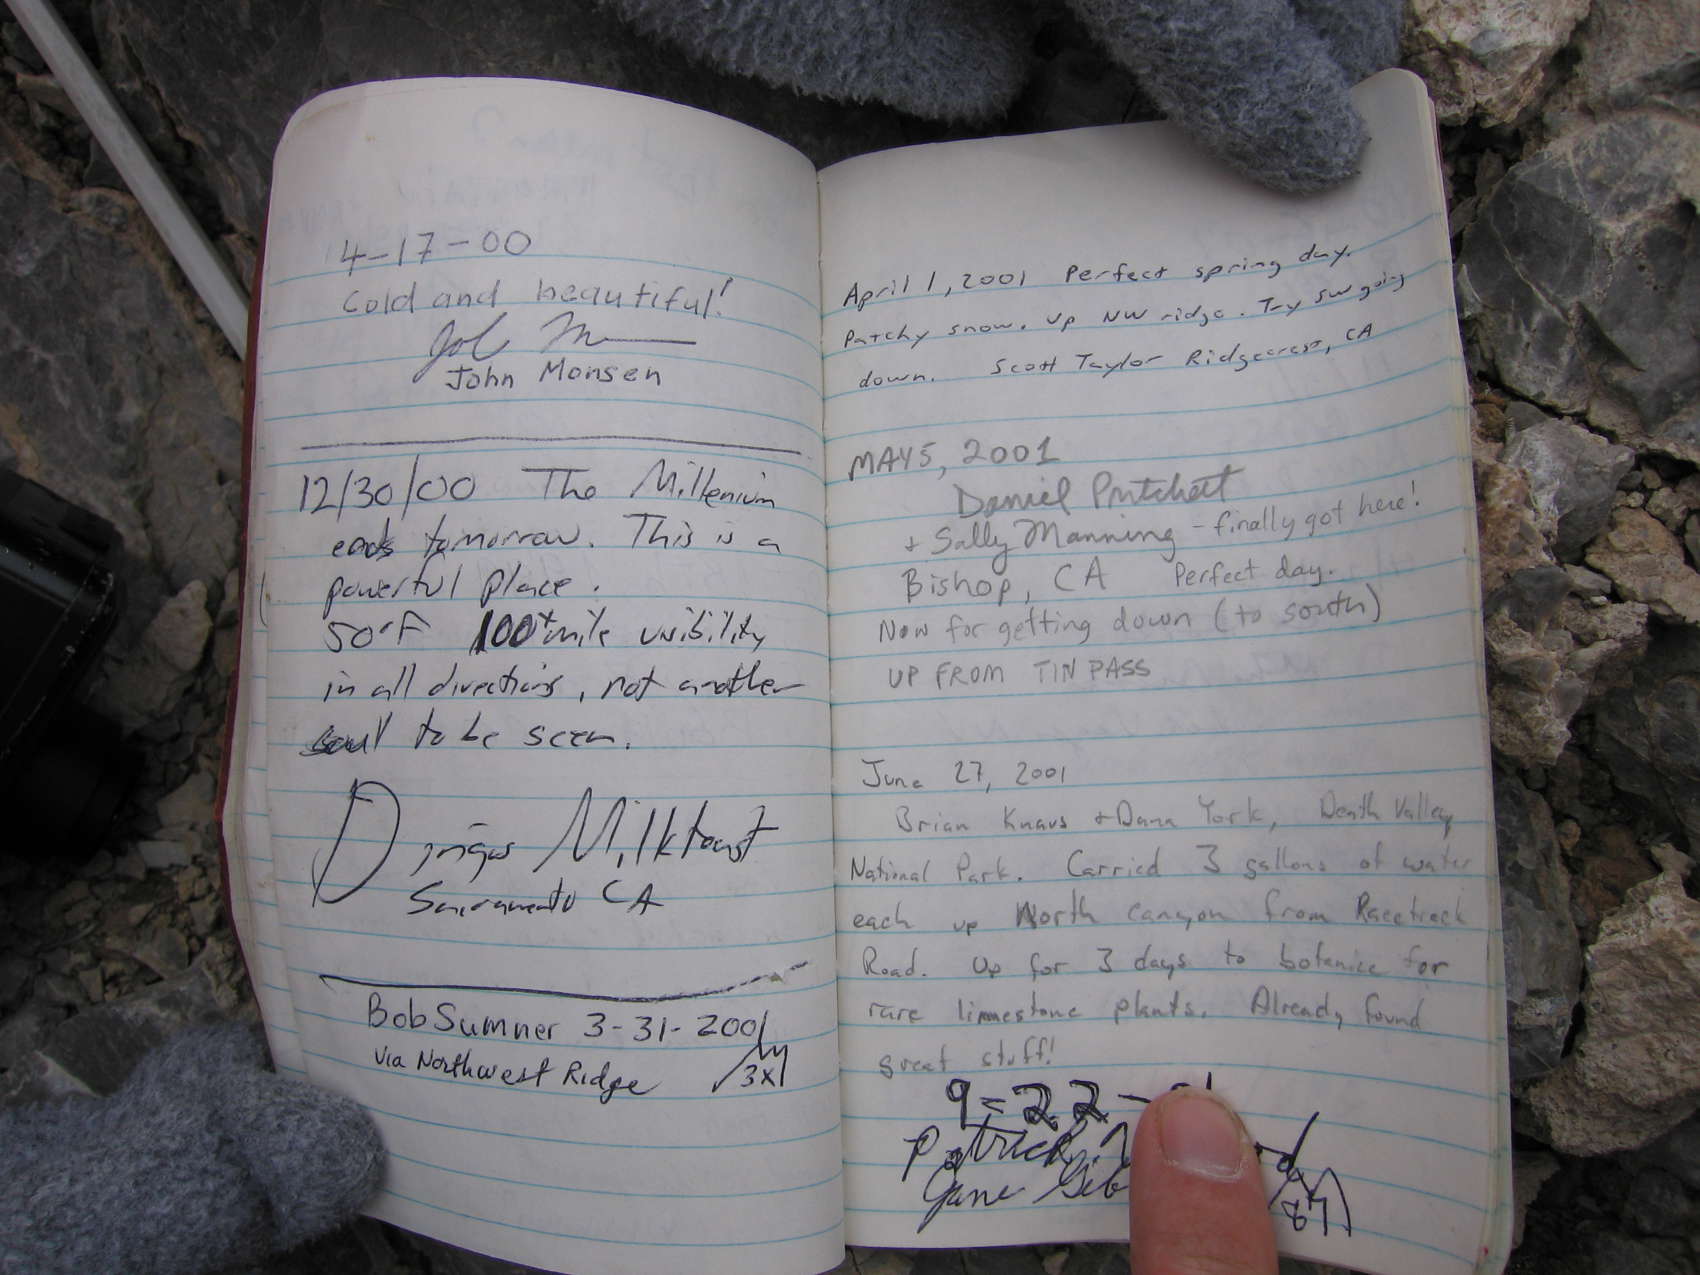 4-17-00
Cold and beautiful!
John Monsen
12/30/00 The Millenium
ends tomorrow. This is a
powerful place.
50°F 100+ mile visibility
in all directions, not another
soul to be seen.
Dingus Milktoast
Sacramento CA
Bob Sumner 3-31-2001
via Northwest Ridge 3x
April 1, 2001 Perfect spring day.
Patchy snow. Up NW ridge. Try SW going
down. Scott Taylor Ridgecrest, CA
MAY 5, 2001
Daniel Pritchett
+ Sally Manning - finally got here!
Bishop, CA Perfect day.
Now for getting down (to south)
UP FROM TIN PASS
June 27, 2001
Brian Knaus + Dana York, Death Valley
National Park. Carried 3 gallons of water
each up North canyon from Racetrack
Road. Up for 3 days to botanize for
rare limestone plants. Already found
great stuff!
9-22-
Patrick
Jane
87